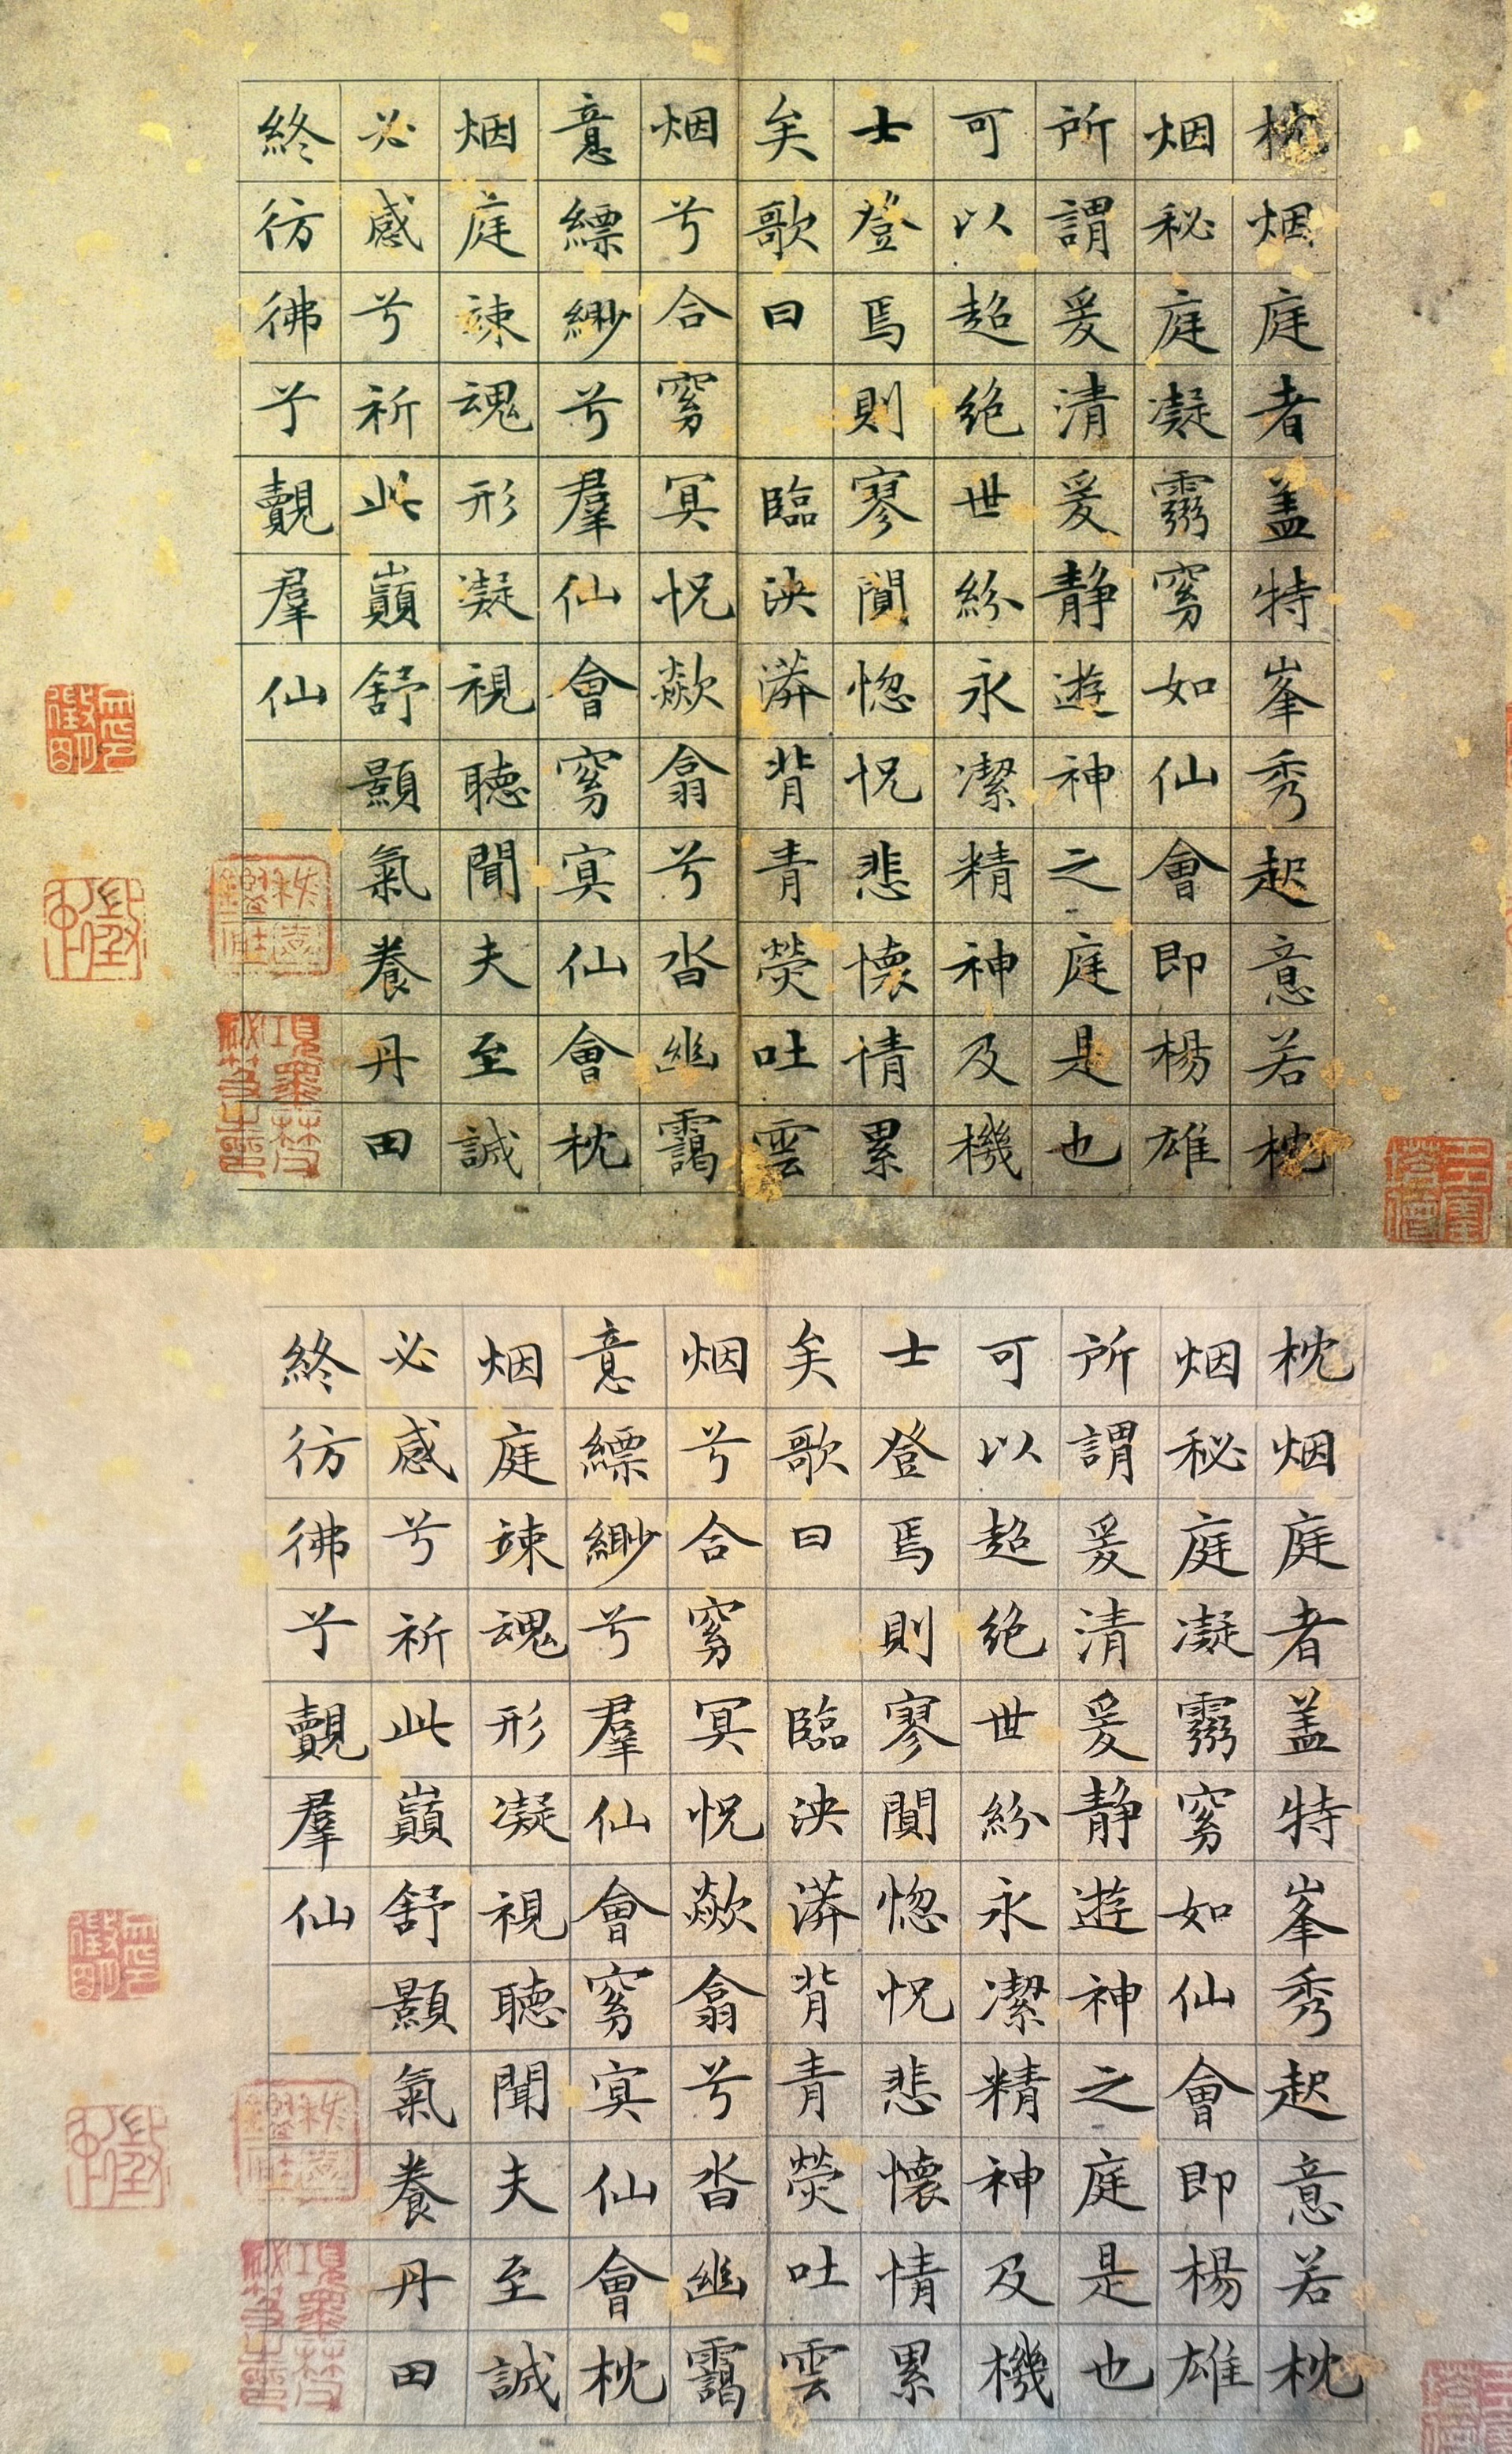 枕烟庭者盖特峯秀起意若枕
烟秘庭凝霛窈如仙會即楊雄
所謂爰清爰静遊神之庭是也
可以超絶世紛永潔精神及機
士登焉則寥闃惚怳悲懷情累
矣歌曰 臨泱漭背青熒吐雲
烟兮合窈冥怳歘翕兮沓幽靄
意縹緲兮羣仙會窈㝠仙會枕
烟庭竦魂形凝視聽聞夫至誠
必感兮祈此巔舒顥氣養丹田
終彷彿兮覿羣仙
枕烟庭者盖特峯秀起意若枕
烟秘庭凝霛窈如仙會即楊雄
所謂爰清爰静遊神之庭是也
可以超絶世紛永潔精神及機
士登焉則寥闃惚怳悲懷情累
矣歌曰 臨泱漭背青熒吐雲
烟兮合窈冥怳歘翕兮沓幽靄
意縹緲兮羣仙會窈㝠仙會枕
烟庭竦魂形凝視聽聞夫至誠
必感兮祈此巔舒顥氣養丹田
終彷彿兮覿羣仙